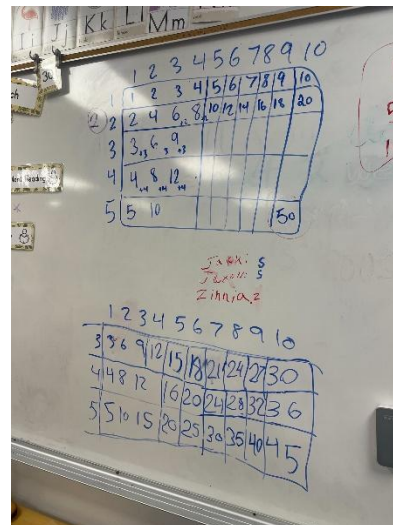 I i J j Kk Ll Mm
30
1 2 3 4 5 6 7 8 9 10
1 1 2 3 4 5 6 7 8 9 10
2 2 4 6 8 10 12 14 16 18 20
3 3 +3 6 3 9 +3
4 4 +4 8 +4 12 +4
5 5 10 50
5
5
Zinnia 2
1 2 3 4 5 6 7 8 9 10
3 3 6 9 12 15 18 21 24 27 30
4 4 8 12 16 20 24 28 32 36
5 5 10 15 20 25 30 35 40 45